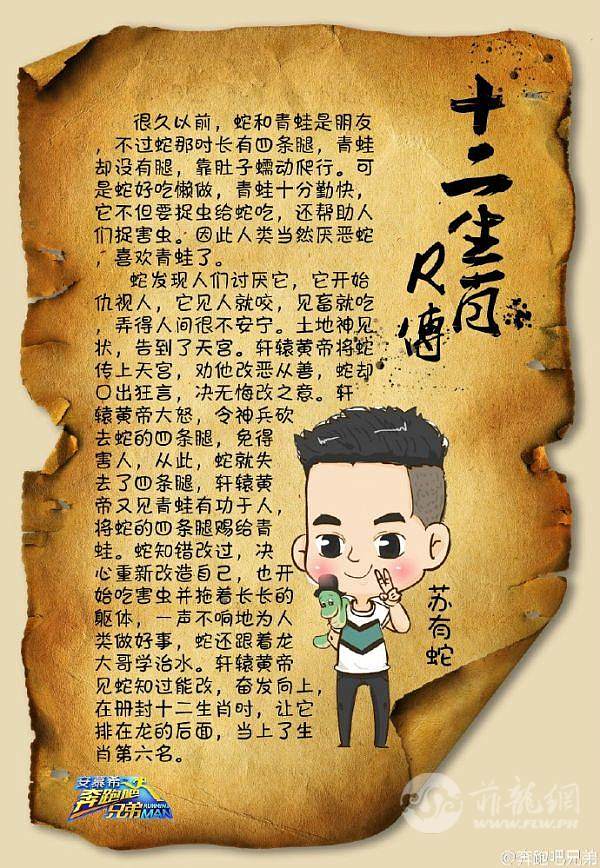 十二生肖
R傳
很久以前，蛇和青蛙是朋友
，不过蛇那时长有四条腿，青蛙
却没有腿，靠肚子蠕动爬行。可
是蛇好吃懒做，青蛙十分勤快，
它不但要捉虫给蛇吃，还帮助人
们捉害虫。因此人类当然厌恶蛇
，喜欢青蛙了。
蛇发现人们讨厌它，它开始
仇视人，它见人就咬，见畜就吃
，弄得人间很不安宁。土地神见
状，告到了天宫。轩辕黄帝将蛇
传上天宫，劝他改恶从善，蛇却
口出狂言，决无悔改之意。轩
辕黄帝大怒，令神兵砍
去蛇的四条腿，免得
害人，从此，蛇就失
去了四条腿，轩辕黄
帝又见青蛙有功于人，
将蛇的四条腿赐给青
蛙。蛇知错改过，决
心重新改造自己，也开
始吃害虫并拖着长长的
躯体，一声不响地为人
类做好事，蛇还跟着龙
大哥学治水。轩辕黄帝
见蛇知过能改，奋发向上，
在册封十二生肖时，让它
排在龙的后面，当上了生
肖第六名。
苏有蛇
安慕希
奔跑吧
兄弟
RUNNING MAN
菲龍網
WWW.FLW.PH
@奔跑吧兄弟